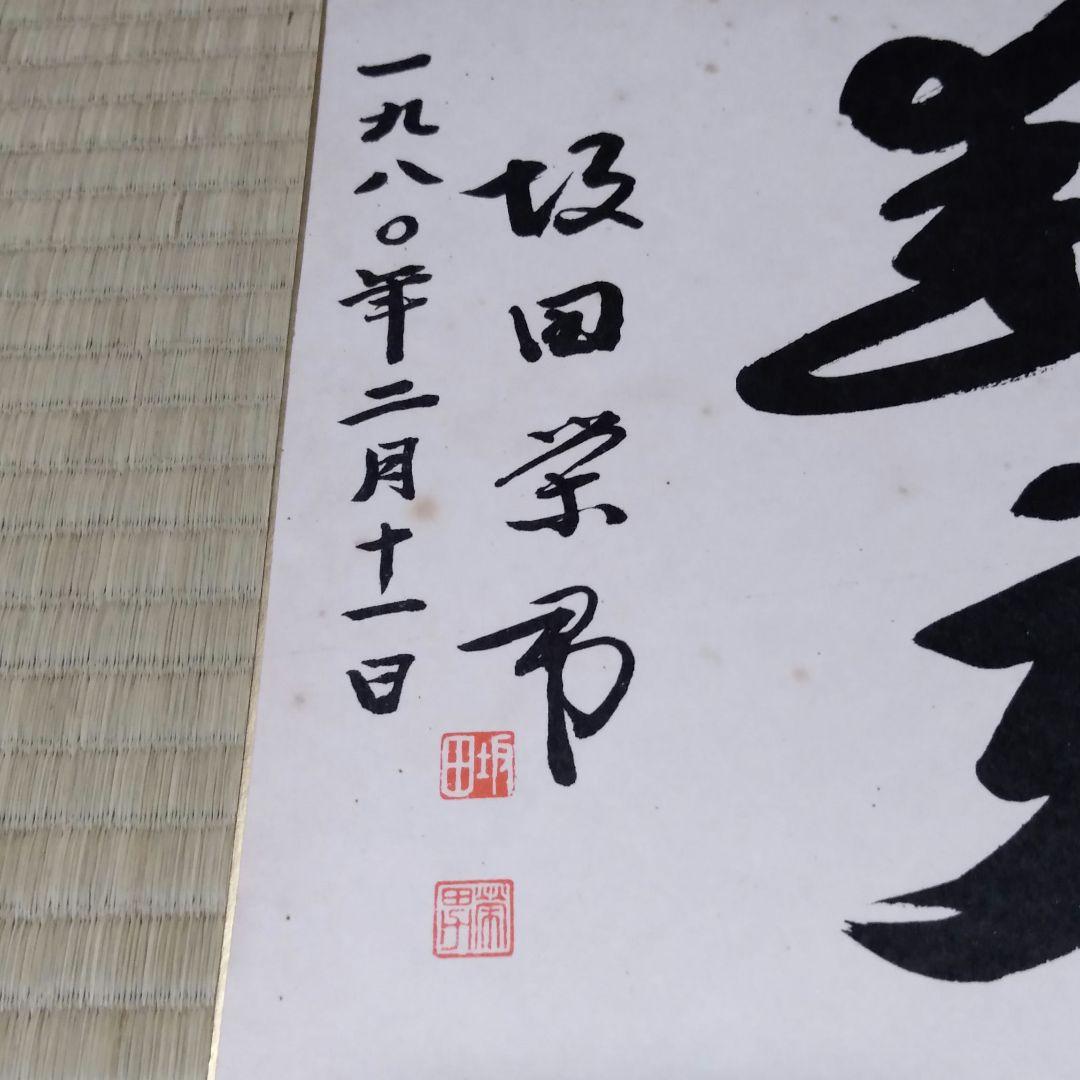 坂田栄男
一九八〇年二月十一日
坂田
榮男